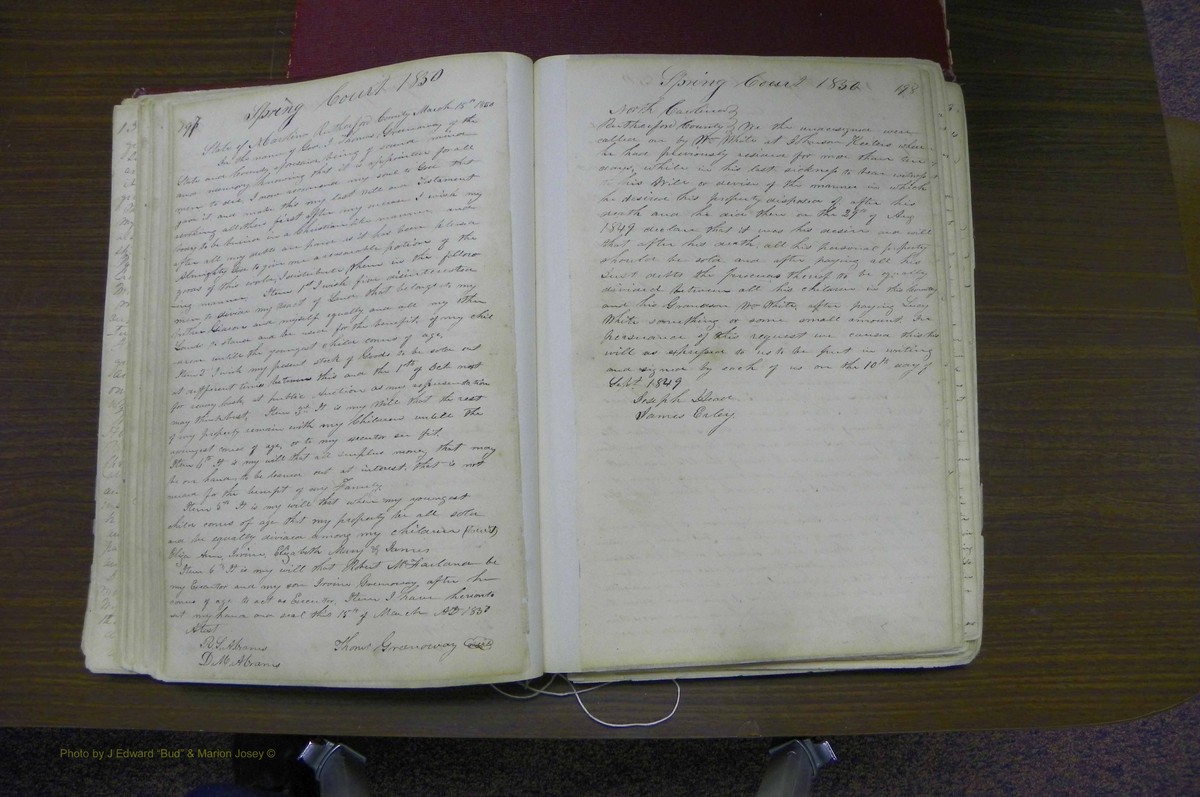 Spring Court 1850
197
State of N Carolina Rutherford County March 15th 1850
In the name of God. I Thomas Greenoway of the
State and County aforesaid being of sound mind
and memory knowing that it is appointed for all
men to die. I now commend my soul to God that
gave it and make this my last will and Testament
revoking all others first after my decease I wish my
body to be buried in a Christian like manner and
after all my debts are paid as it has been pleased
Almighty God to give me a reasonable portion of the
goods of this world, I distribute them in the follow
ing manner. Item 1st I wish five disinterested
men to divide my tract of Land that belongs to my
and myself equally and all my other
Lands to stand and be used for the benefit of my chil
dren untill the youngest child comes of age.
Item 2 I wish my present stock of Goods to be sold out
at different times between this and the 1st of Oct next
for ready cash at public Auction as my representative
may think best. Item 3d It is my Will that the rest
of my property remain with my Children untill the
youngest comes of age, or to my executor see fit.
Item 4th It is my will that all surplus money that may
be on hand to be loaned out at interest, that is not
used for the benefit of my Family.
Item 5th It is my will that when my youngest
child comes of age that my property be all sold
and be equally divided among my children
Eliza Ann, Irvine, Elizabeth Mary & James
Item 6th It is my will that Robert McFarland be
my Executor and my son Irvine Greenoway, after he
comes of age to act as Executor, Item I have hereunto
set my hand and seal this 15th of March AD 1850
Attest
R. L. Abrams
Thos Greenoway (Seal)
D. M. Abrams
Spring Court 1850
198
North Carolina
Rutherford County We the undersigned were
called on by Wm White at Keeters where
he had previously resided for more than ten
days, while in his last sickness to bear witness
to his Will or devise of the manner in which
he desired his property disposed of after his
death and he did then on the 29th of Aug
1849 declare that it was his desire and will
that after his death, all his personal property
should be sold and after paying all his
Just debts the proceeds thereof to be equally
divided between all his children in this County
and his Grandson Wm White, after paying
White something or some small amount. In
persuance of this request we caused this his
will as expressed to us to be put in writing
and signed by each of us on the 10th day of
Sept 1849
Joseph
James Exley
Photo by J Edward "Bud" & Marion Josey ©